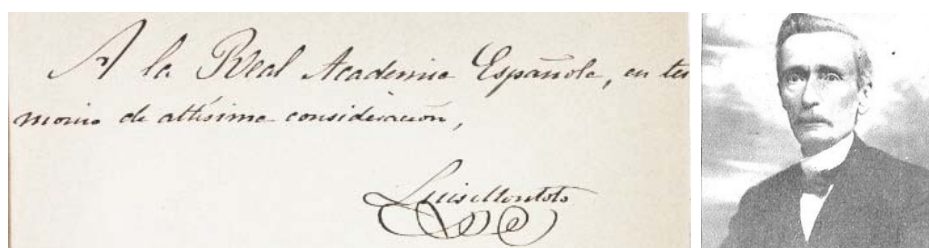 A la Real Academia Española, en tes
monio de altísima consideración,
Luis Montoto